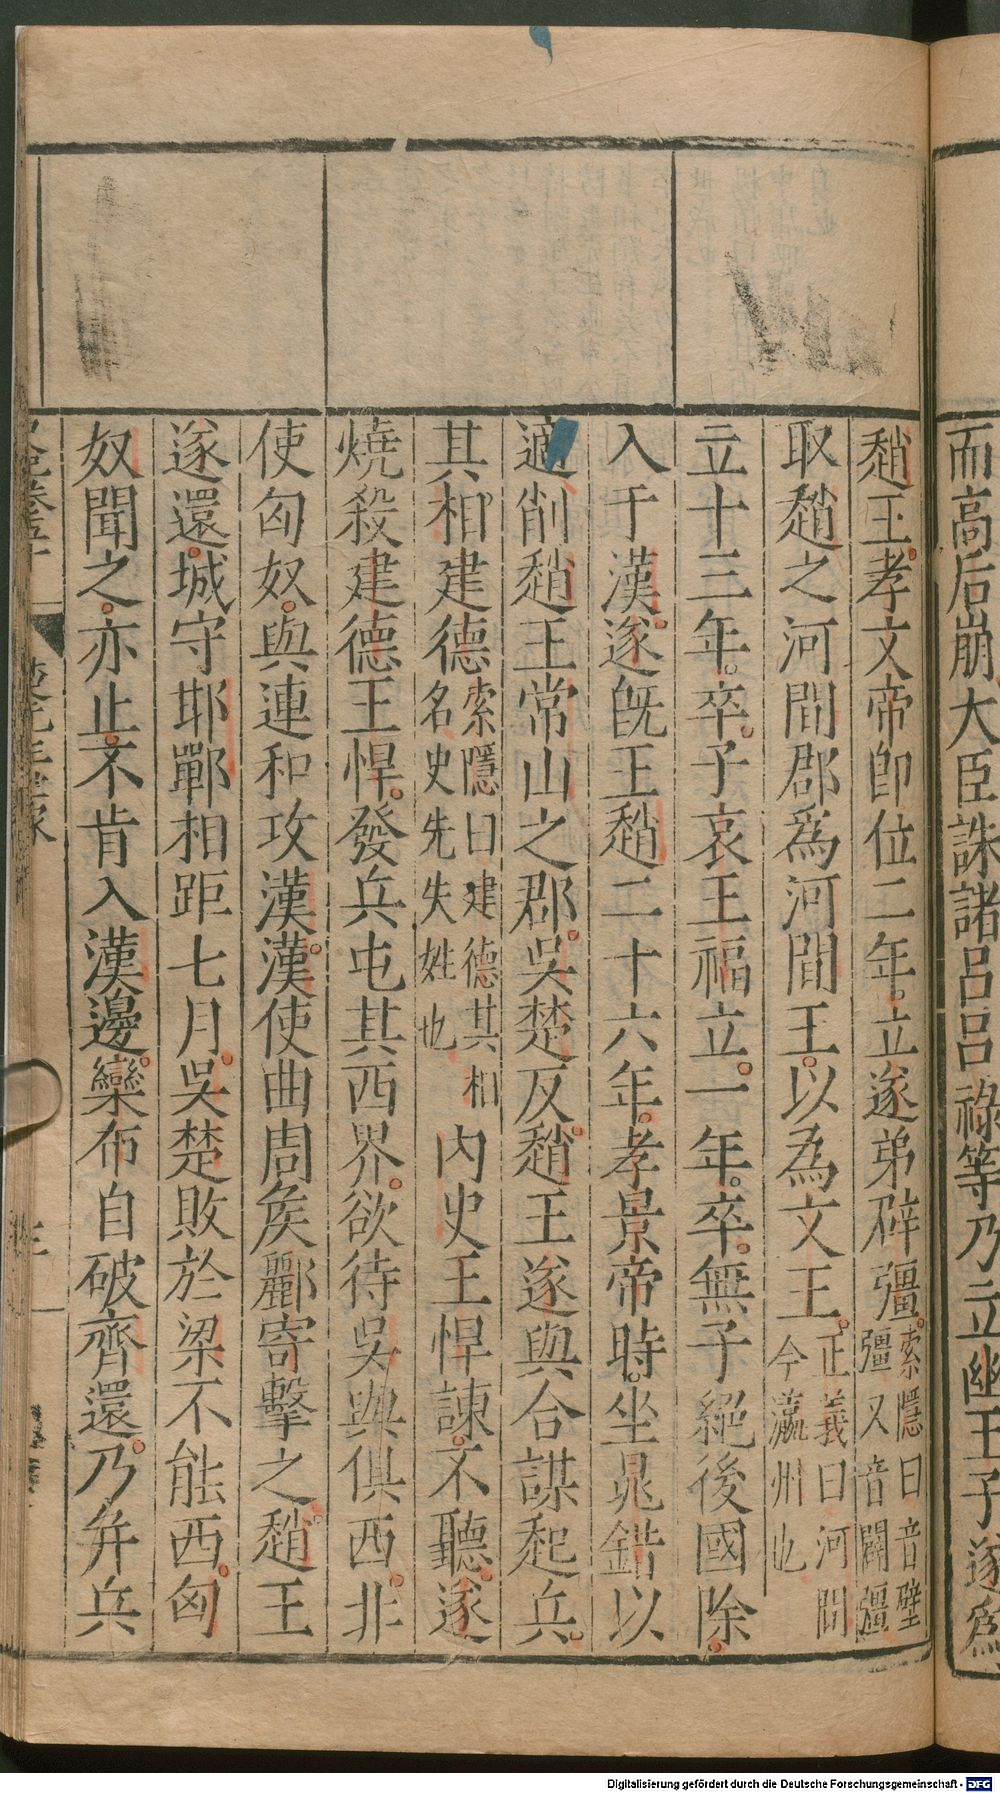 而高后崩大臣誅諸呂呂祿等乃立幽王子遂爲
趙王孝文帝卽位二年立遂弟辟彊索隱曰音壁彊又音闢彊
取趙之河間郡爲河間王以為文王正義曰河間今瀛州也
立十三年卒子哀王福立一年卒無子絕後國除
入于漢遂旣王趙二十六年孝景帝時坐晁錯以
適削趙王常山之郡吳楚反趙王遂與合謀起兵
其相建德索隱曰建德其相名史先失姓也內史王悍諫不聽遂
燒殺建德王悍發兵屯其西界欲待吳與俱西非
使匈奴與連和攻漢漢使曲周矦酈寄擊之趙王
遂還城守邯鄲相距七月吳楚敗於梁不能西匈
奴聞之亦止不肯入漢邊欒布自破齊還乃并兵
Digitalisierung gefördert durch die Deutsche Forschungsgemeinschaft - DFG